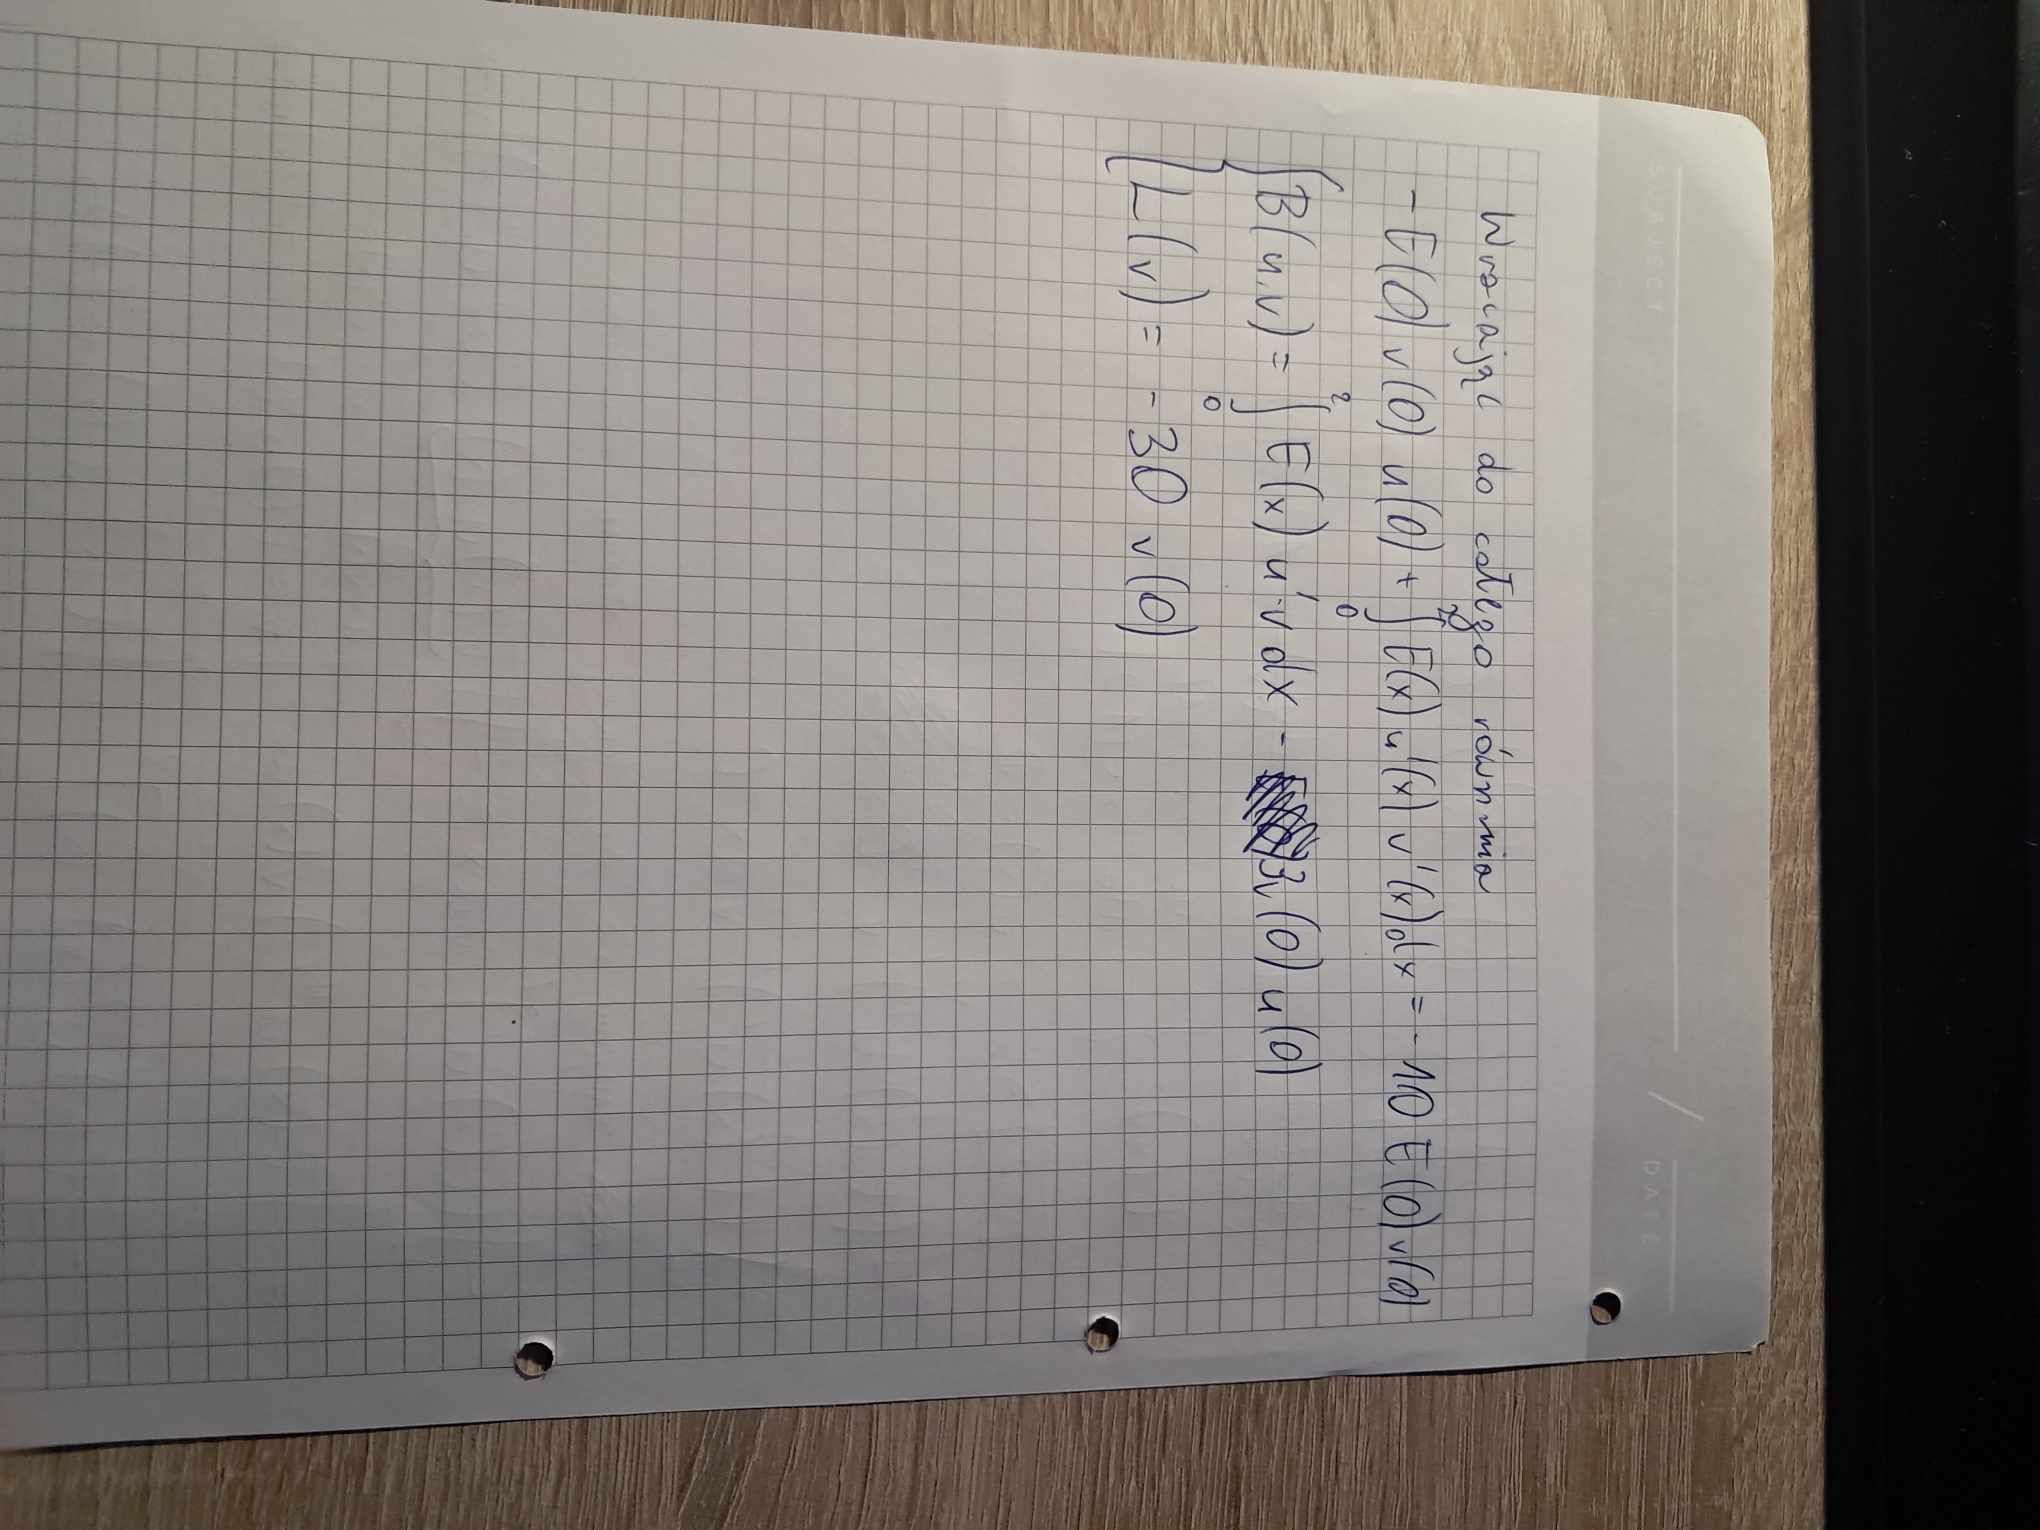 SUBJECT / DATE
Wracając do całego równania
-E(0) v(0) u(0) + ∫₀² E(x) u'(x) v'(x) dx = -10 E(0) v(0)
B(u,v) = ∫₀² E(x) u'·v dx - 3v(0) u(0)
L(v) = -30 v(0)